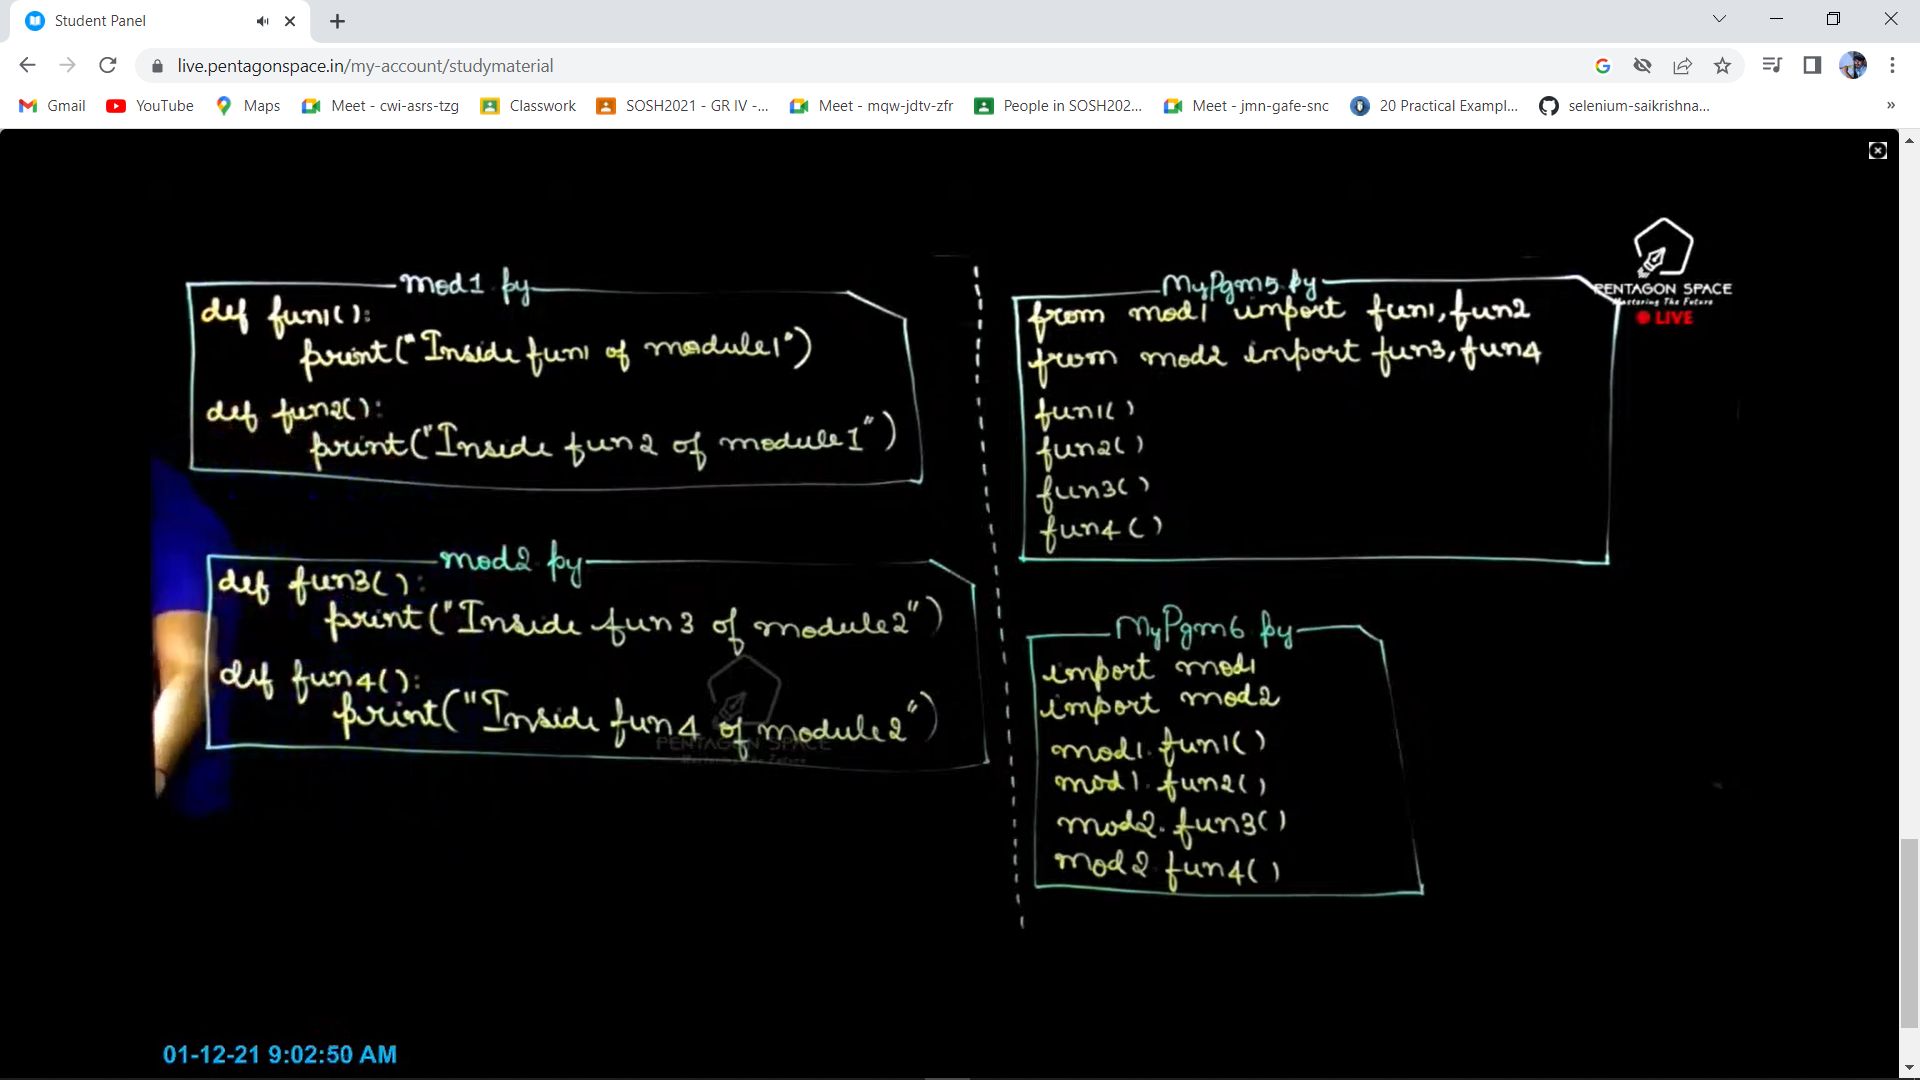 Student Panel
live.pentagonspace.in/my-account/studymaterial
Gmail
YouTube
Maps
Meet - cwi-asrs-tzg
Classwork
SOSH2021 - GR IV -...
Meet - mqw-jdtv-zfr
People in SOSH202...
Meet - jmn-gafe-snc
20 Practical Exampl...
selenium-saikrishna...
»
mod1.py
def fun1():
print("Inside fun1 of module1")
def fun2():
print("Inside fun2 of module1")
mod2.py
def fun3():
print("Inside fun3 of module2")
def fun4():
print("Inside fun4 of module2")
PENTAGON SPACE
Mastering The Future
MyPgm5.py
from mod1 import fun1,fun2
from mod2 import fun3,fun4
fun1()
fun2()
fun3()
fun4()
MyPgm6.py
import mod1
import mod2
mod1.fun1()
mod1.fun2()
mod2.fun3()
mod2.fun4()
PENTAGON SPACE
Mastering The Future
LIVE
01-12-21 9:02:50 AM